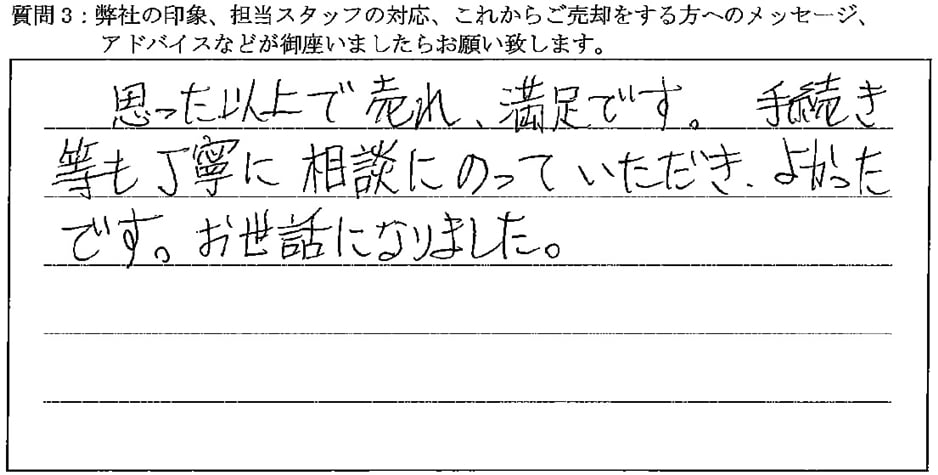 質問3：弊社の印象、担当スタッフの対応、これからご売却をする方へのメッセージ、
アドバイスなどが御座いましたらお願い致します。
思った以上で売れ、満足です。 手続き
等も丁寧に相談にのっていただき、よかった
です。お世話になりました。